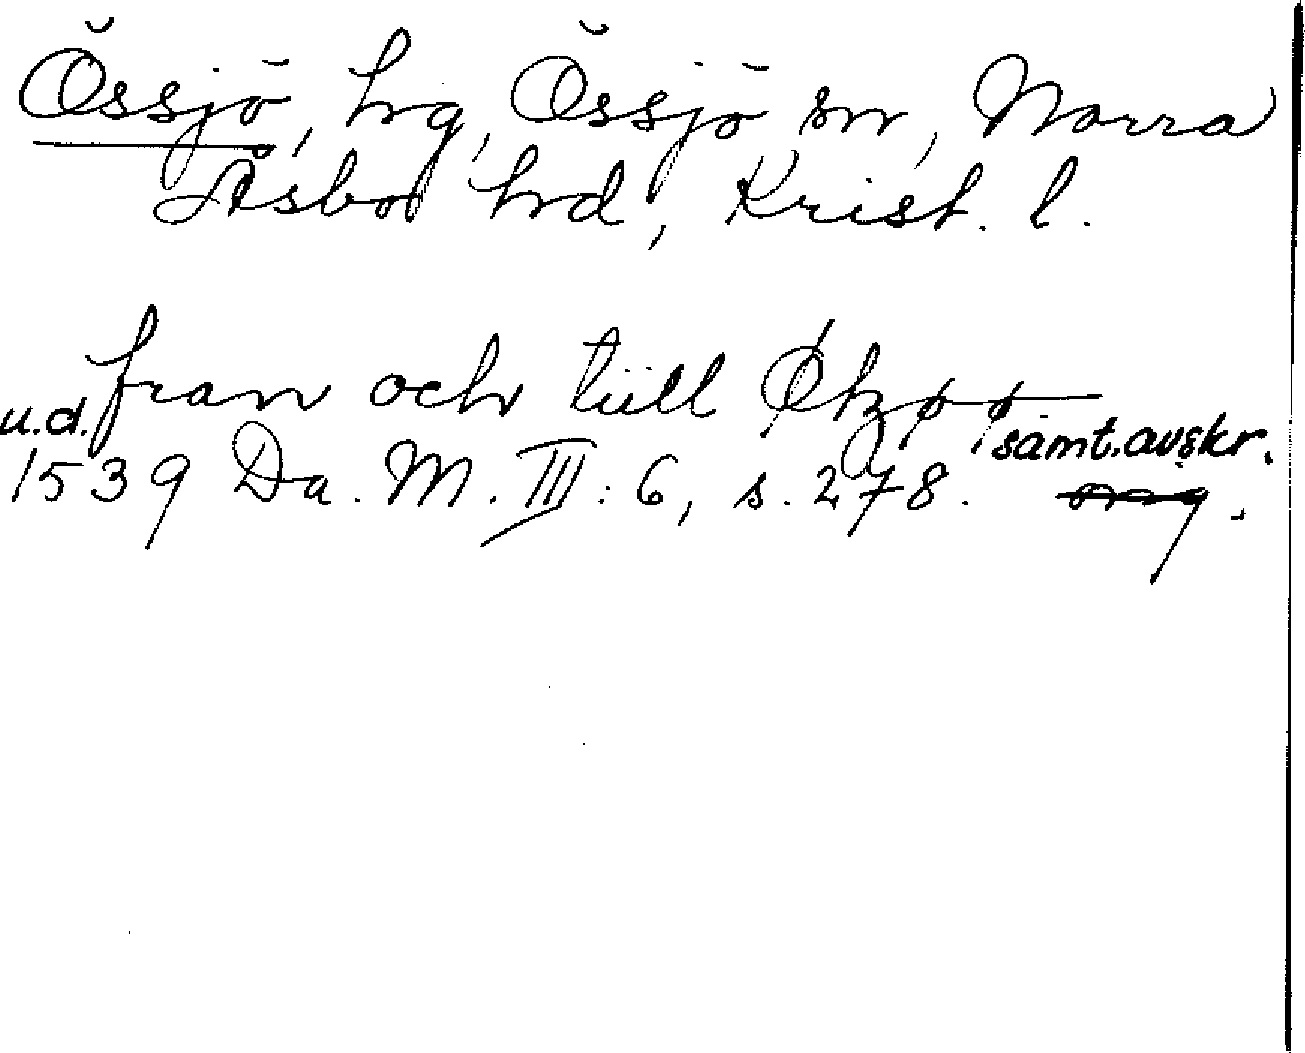 Össjö, hg, Össjö sn, Norra
Åsbo hd, Krist. l.
fran och tiill
u.d. samt. avskr.
1539 Da. M. III: 6, s. 278.